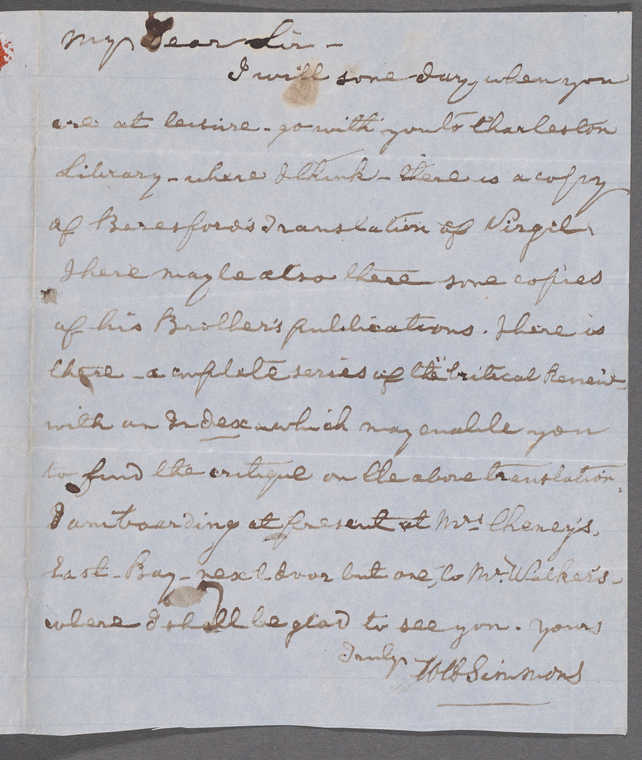 My Dear Sir -
I will some day, when you
are at leisure - go with you to Charleston
Library - where I think - there is a copy
of Beresford's Translation of Virgil.
There may be also there some copies
of his Brother's publications. There is
there - a complete series of the "Critical Review,"
with an Index - which may enable you
to find the critique on the above translation.
I am boarding at present at Mrs. Cheney's,
East - Bay - next door but one, to Mr. Walker's -
where I shall be glad to see you. Yours
Truly
WW Simmons